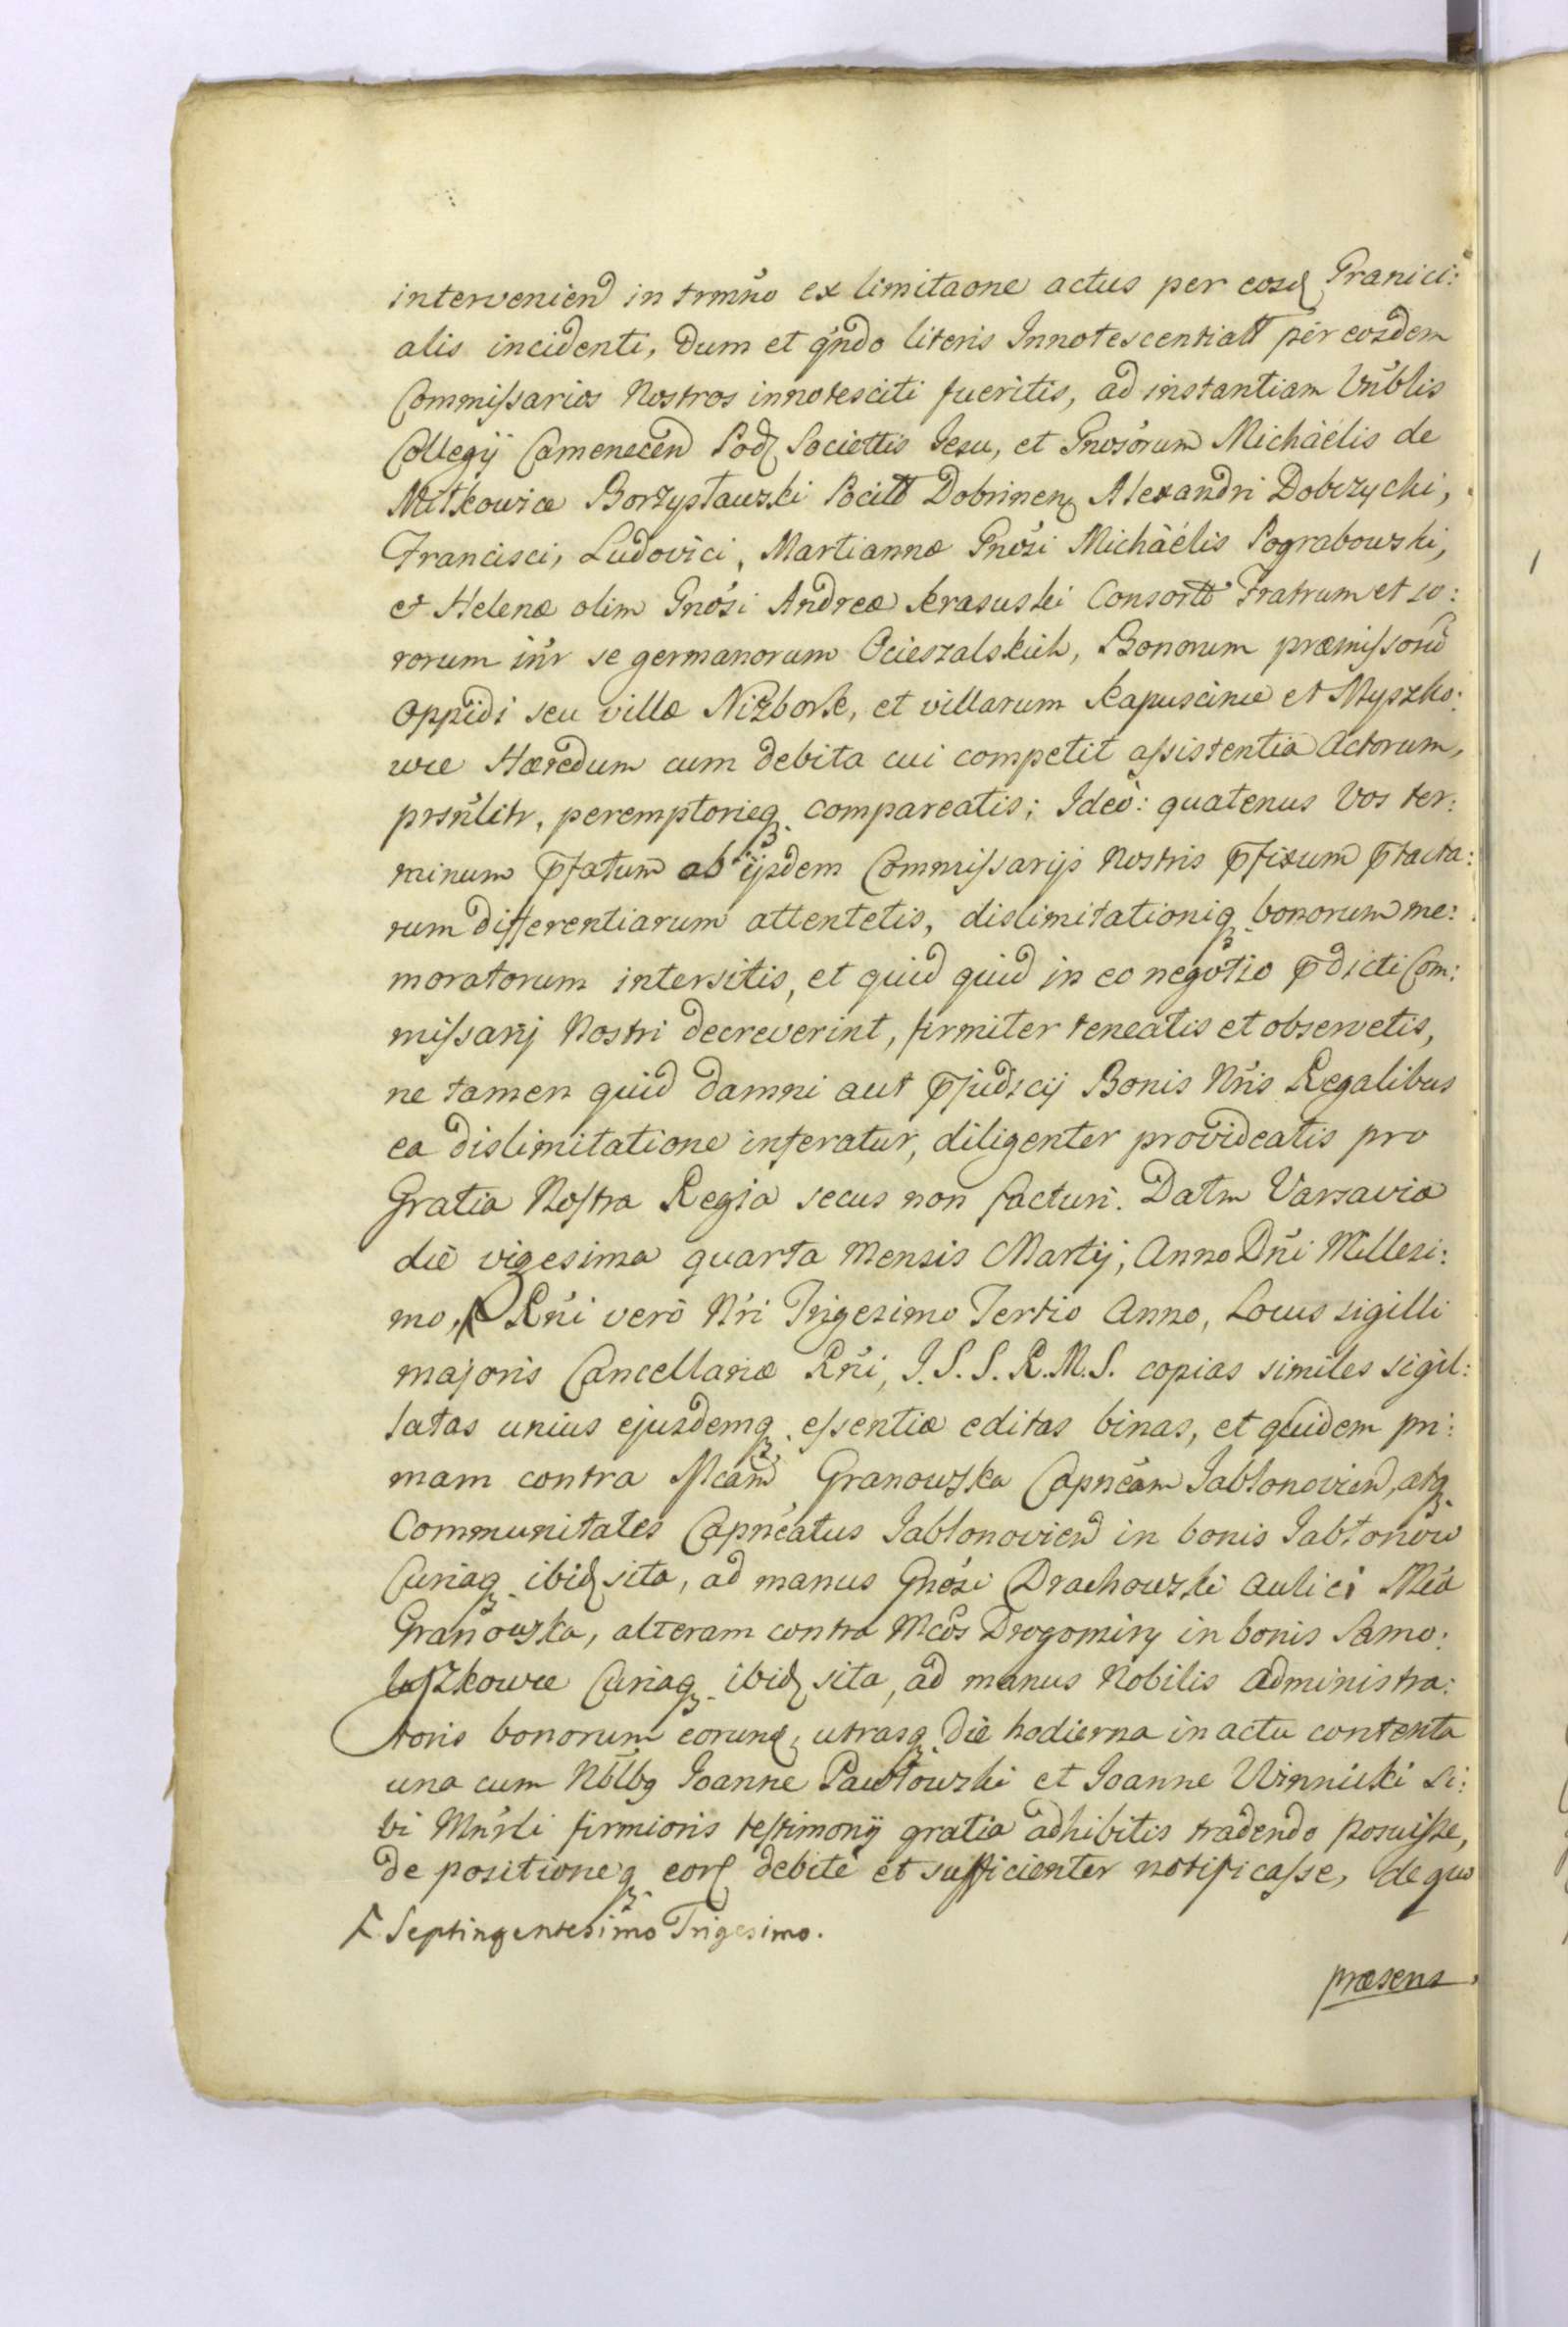 interveniend in trmño ex limitaone actus per eosd Granici:
alis incidenti, Dum et qndo literis Innotescentialt per eosdem
Commissarios Nostros innotesciti fueritis, ad instantiam Vnblis
Collegij Camenecen Pod Societtis Jesu, et Gnosorum Michaèlis de
Mitkowice Borzysławski Pocilt Dobrinen Alexandri Dobrzychi,
Francisci, Ludovici, Martiannæ Gnosi Michàélis Pograbowski,
et Helenæ olim Gnosi Andreæ Krasuski Consortt Fratrum et so:
rorum inr se germanorum Ocieszalskich, Bonorum præmissoru
Oppidi seu villæ Niżbork, et villarum Kapuscince et Myszko:
wce Hæredum cum debita cui competit assistentia Actorum,
prsnlitr, peremptorieq compareatis; Ideò: quatenus Vos ter:
minum pfatum ab ijsdem Commissarijs Nostris pfixum ptacta:
rum differentiarum attentetis, dislimitationiq bonorum me:
moratorum intersitis, et quid quid in eo negotio pdicti Com:
missarij Nostri decreverint, firmiter teneatis et observetis,
ne tamen quid damni aut pjudicij Bonis Nris Regalibus
ea dislimitatione inferatur, diligenter provideatis pro
Gratia Nostra Regia secus non facturi. Datm Varsaviæ
die vigesima quarta Mensis Martij, Anno Dni Millesi:
mo, Rñi verò Nri Trigesimo Tertio Anno, Locus sigilli
majoris Cancellariæ Rñi, J. S. S. R. M. S. copias similes sigil:
latas unius ejusdemq essentiæ editas binas, et quidem pri:
mam contra Mcam Granowska Capneam Jabłonovien, atq
Communitates Capneatus Jabłonovien in bonis Jabłonow
Curiaq ibid sita, ad manus Gnosi Drachowski aulici Mca
Granowska, alteram contra Mcos Drogomiry in bonis Samo:
luszkowce Curiaq ibid sita, ad manus Nobilis administra:
toris bonorum eorund, utrasq die hodierna in actu contenta
una cum Nblbq Joanne Pawłowski et Joanne Winnicki si:
bi Mnrli firmioris testimonij gratia adhibitis tradendo posuisse,
de positioneq eor debitè et sufficienter notificasse, de quo
Septingentesimo Trigesimo.
præsens